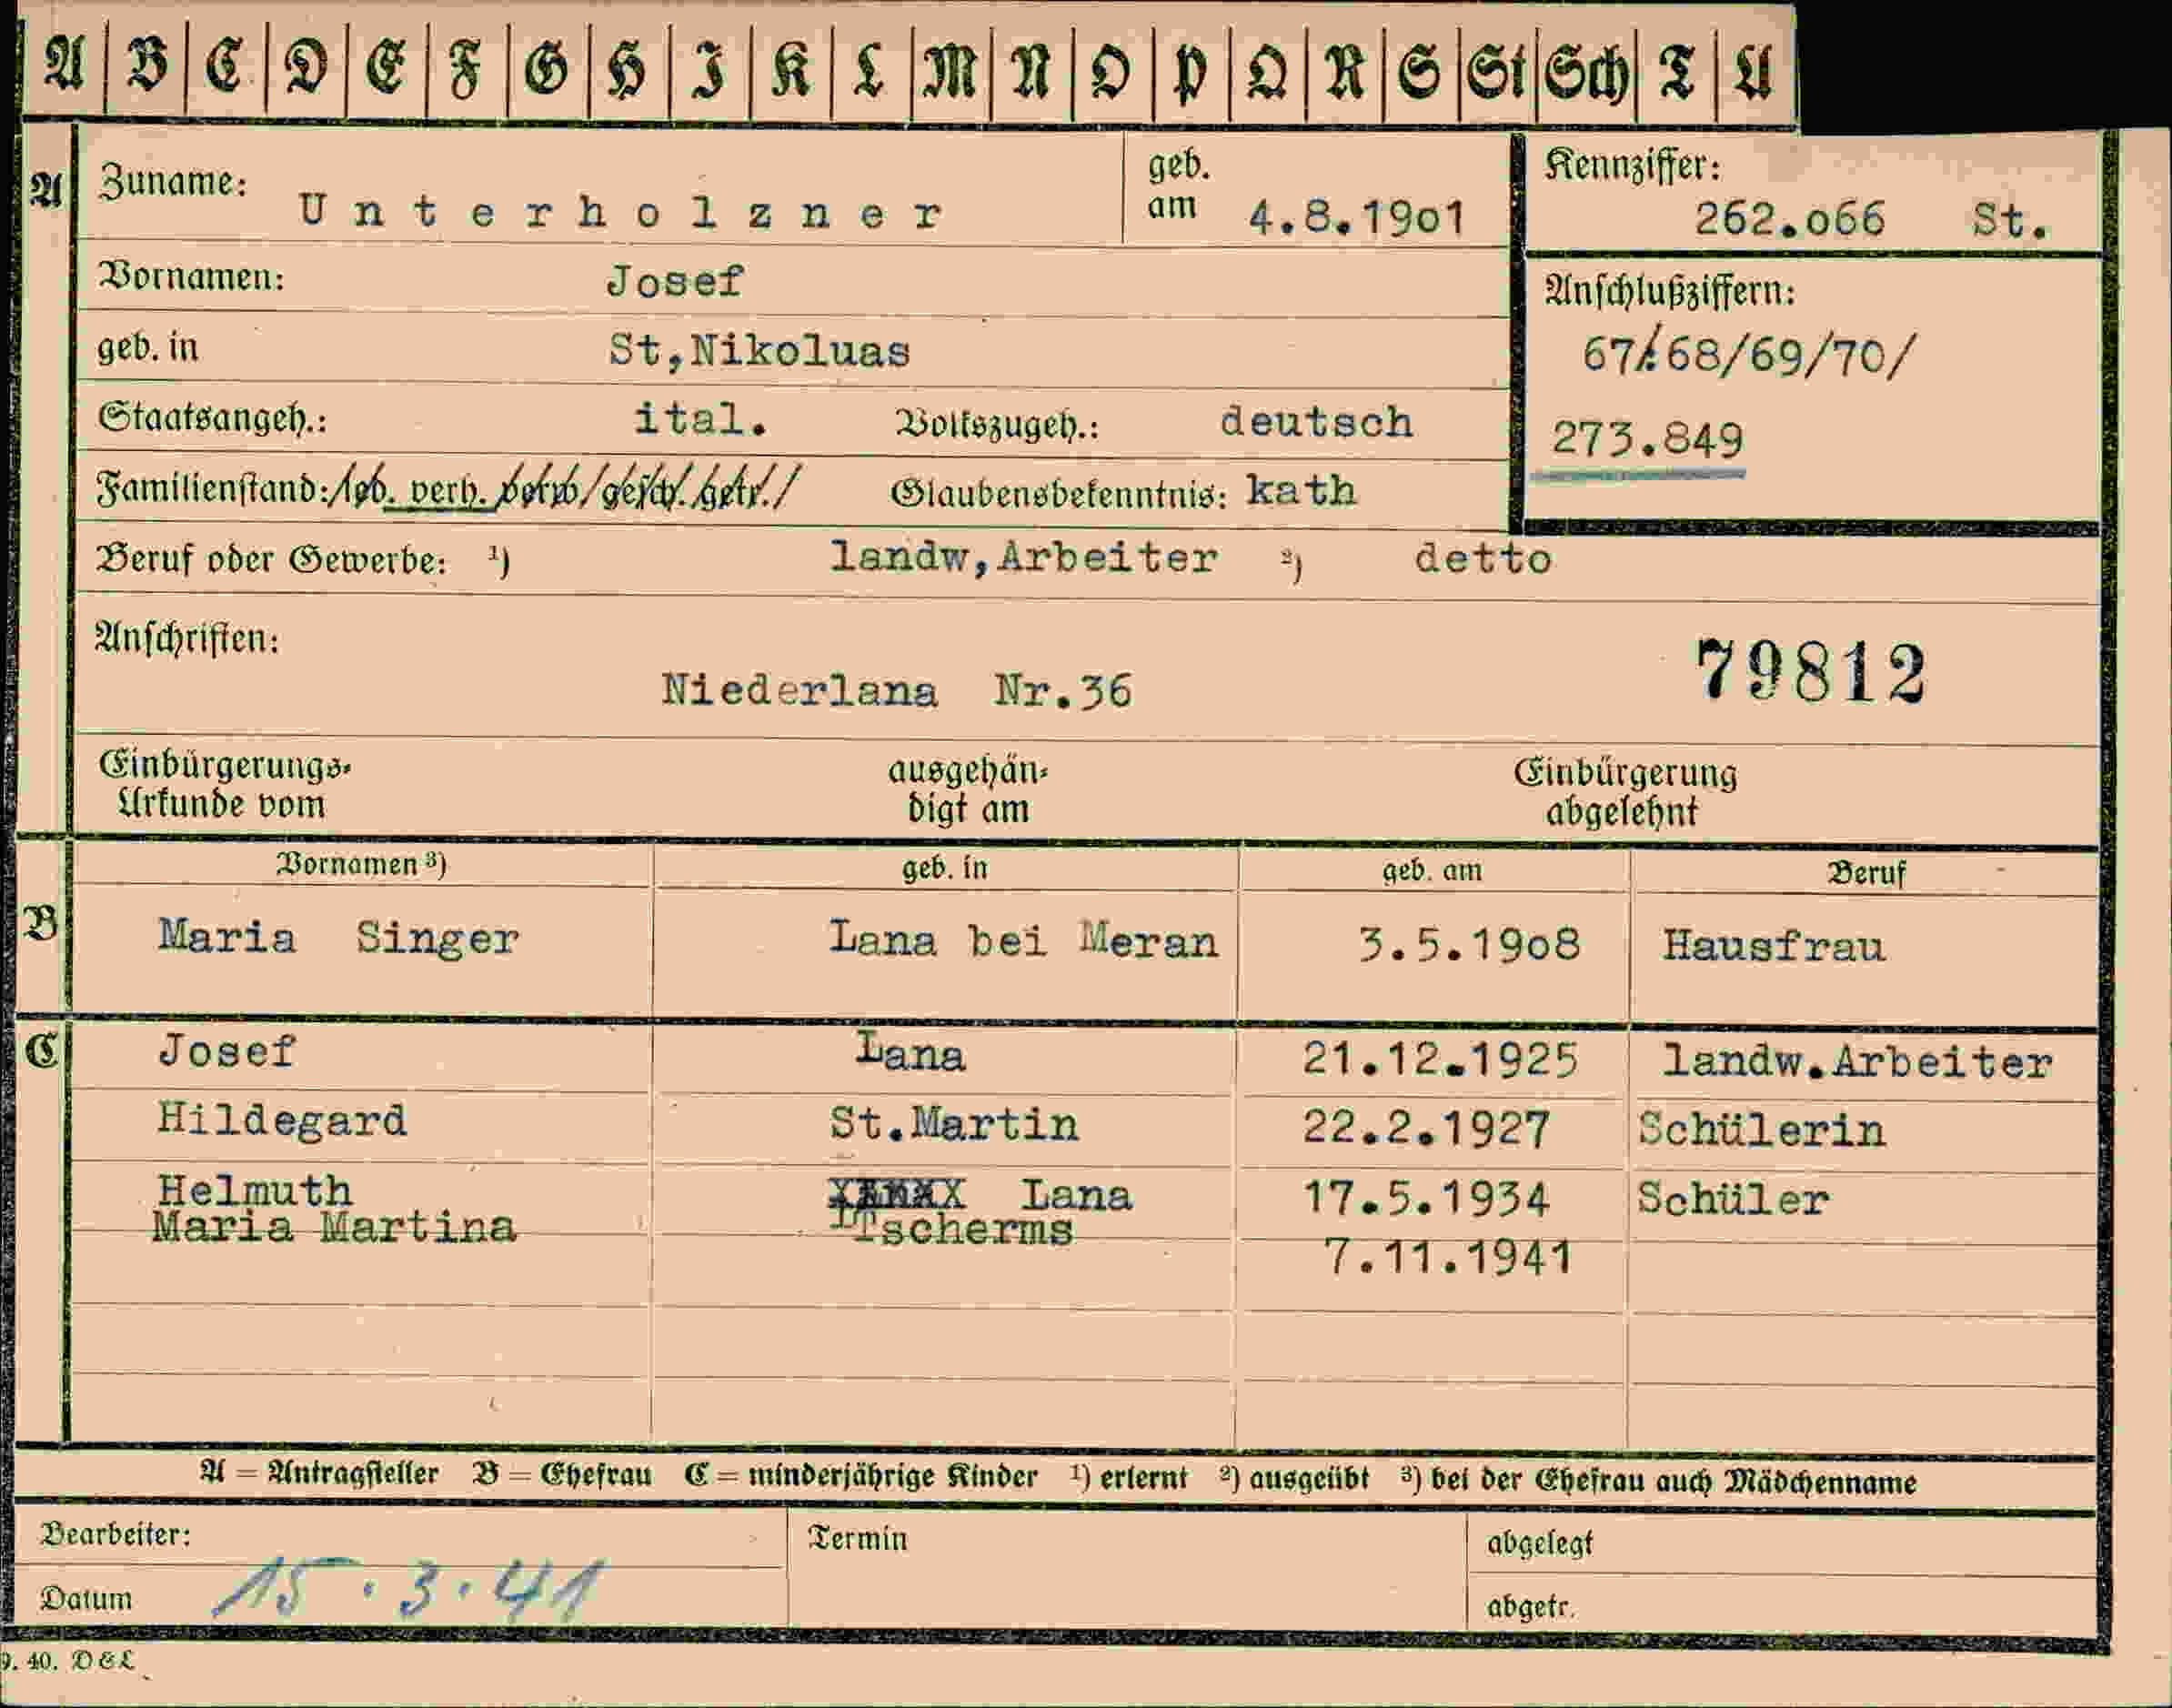 A B C D E F G H I K L M N O P Q R S St Sch T U
A Zuname: Unterholzner geb. am 4.8.19o1 Kennziffer: 262.o66 St.
Vornamen: Josef
Anschlußziffern:
geb. in St,Nikoluas 67/68/69/70/
Staatsangeh.: ital. Volkszugeh.: deutsch 273.849
Familienstand: led. verh. verw. gesch. getr. Glaubensbekenntnis: kath
Beruf oder Gewerbe: ¹) landw,Arbeiter ²) detto
Anschriften:
Niederlana Nr.36 79812
Einbürgerungs- ausgehän- Einbürgerung
Urkunde vom digt am abgelehnt
Vornamen ³) geb. in geb. am Beruf
B Maria Singer Lana bei Meran 3.5.19o8 Hausfrau
C Josef Lana 21.12.1925 landw.Arbeiter
Hildegard St.Martin 22.2.1927 Schülerin
Helmuth Lana 17.5.1934 Schüler
Maria Martina Tscherms 7.11.1941
A = Antragsteller B = Ehefrau C = minderjährige Kinder ¹) erlernt ²) ausgeübt ³) bei der Ehefrau auch Mädchenname
Bearbeiter: Termin abgelegt
Datum 15.3.41 abgetr.
9. 40. D&L